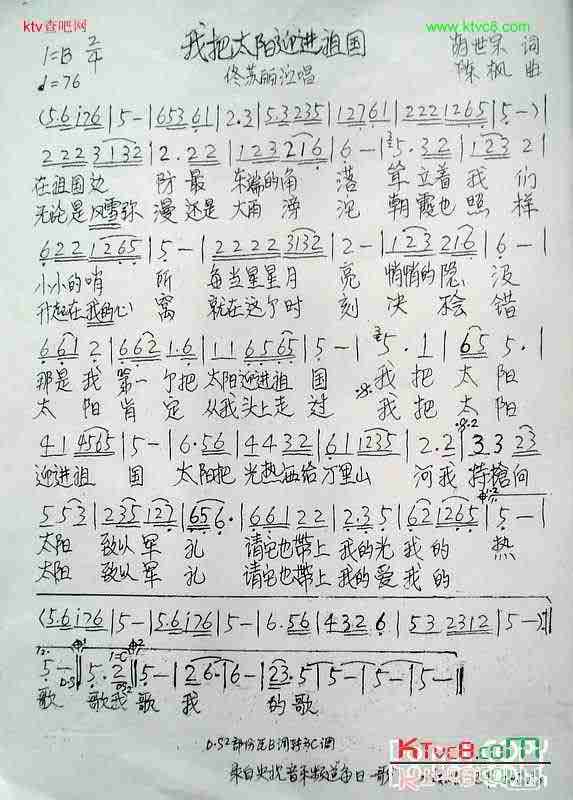 ktv查吧网
www.ktvc8.com
www.ktvc8.com
我把太阳迎进祖国
1=B 2/4
胡世宗 词
♩=76
佟苏丽泣唱
陈枫 曲
(5.6 i76|5-|653.61|2.3|5.3235|12761|222 1265|5-)|
2223132|2.22|123216|6-|5.32|1232|
在祖国边 防最 东端的角 落 耸立着我 们
无论是风雪弥 漫还是 大雨滂 沱 朝霞也照 样
6221265|5-|22223132|2-|123216|6-|
小小的哨 所 每当星星月 亮 悄悄的隐 没
升起在我的心 窝 就在这个时 刻 决不会 错
6612|6621.6|116565|5-|5.1|655.|
那是我 第一个把 太阳迎进祖 国 我把太 阳
太阳肯 定从我头上走 过 我把太 阳
414565|5-|6.56|4432|611235|2.2|3323|
迎进祖 国 太阳把 光热洒给 万里山 河我 持槍向
553|235127|656.|6122|2.35|621265|5-|
太阳 致以军 礼 请它也带上 我的光我的 热
太阳 致以军 礼 请它也带上 我的爱我的
(5.6i76|5-|5.6i76|5-|6.56|4326|532312|5-)
5-|5.2|5-|26.|6-|23.5|5-|5-|5-|
歌 歌我 歌 我 的歌
D.S2部份由B调转为C调
来自央视音乐频道每日一歌
KTvc8.com